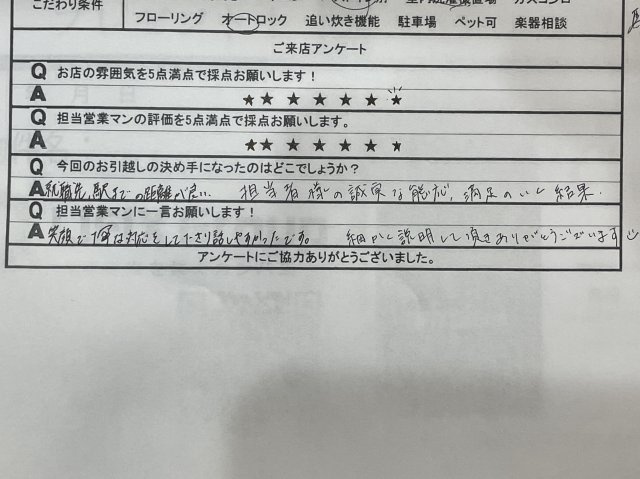 こだわり条件
フローリング オートロック 追い炊き機能 駐車場 ペット可 楽器相談
ご来店アンケート
Q お店の雰囲気を5点満点で採点お願いします！
A ★★ ★ ★ ★ ★ ★
Q 担当営業マンの評価を5点満点で採点お願いします。
A ★★ ★ ★ ★ ★ ★
Q 今回のお引越しの決め手になったのはどこでしょうか？
A 就職先、駅までの距離が良い 担当者様の誠実な対応、満足のいく結果。
Q 担当営業マンに一言お願いします！
A 笑顔で 対応をしてくださり話しやすかったです。 細かく説明して頂きありがとうございます
アンケートにご協力ありがとうございました。